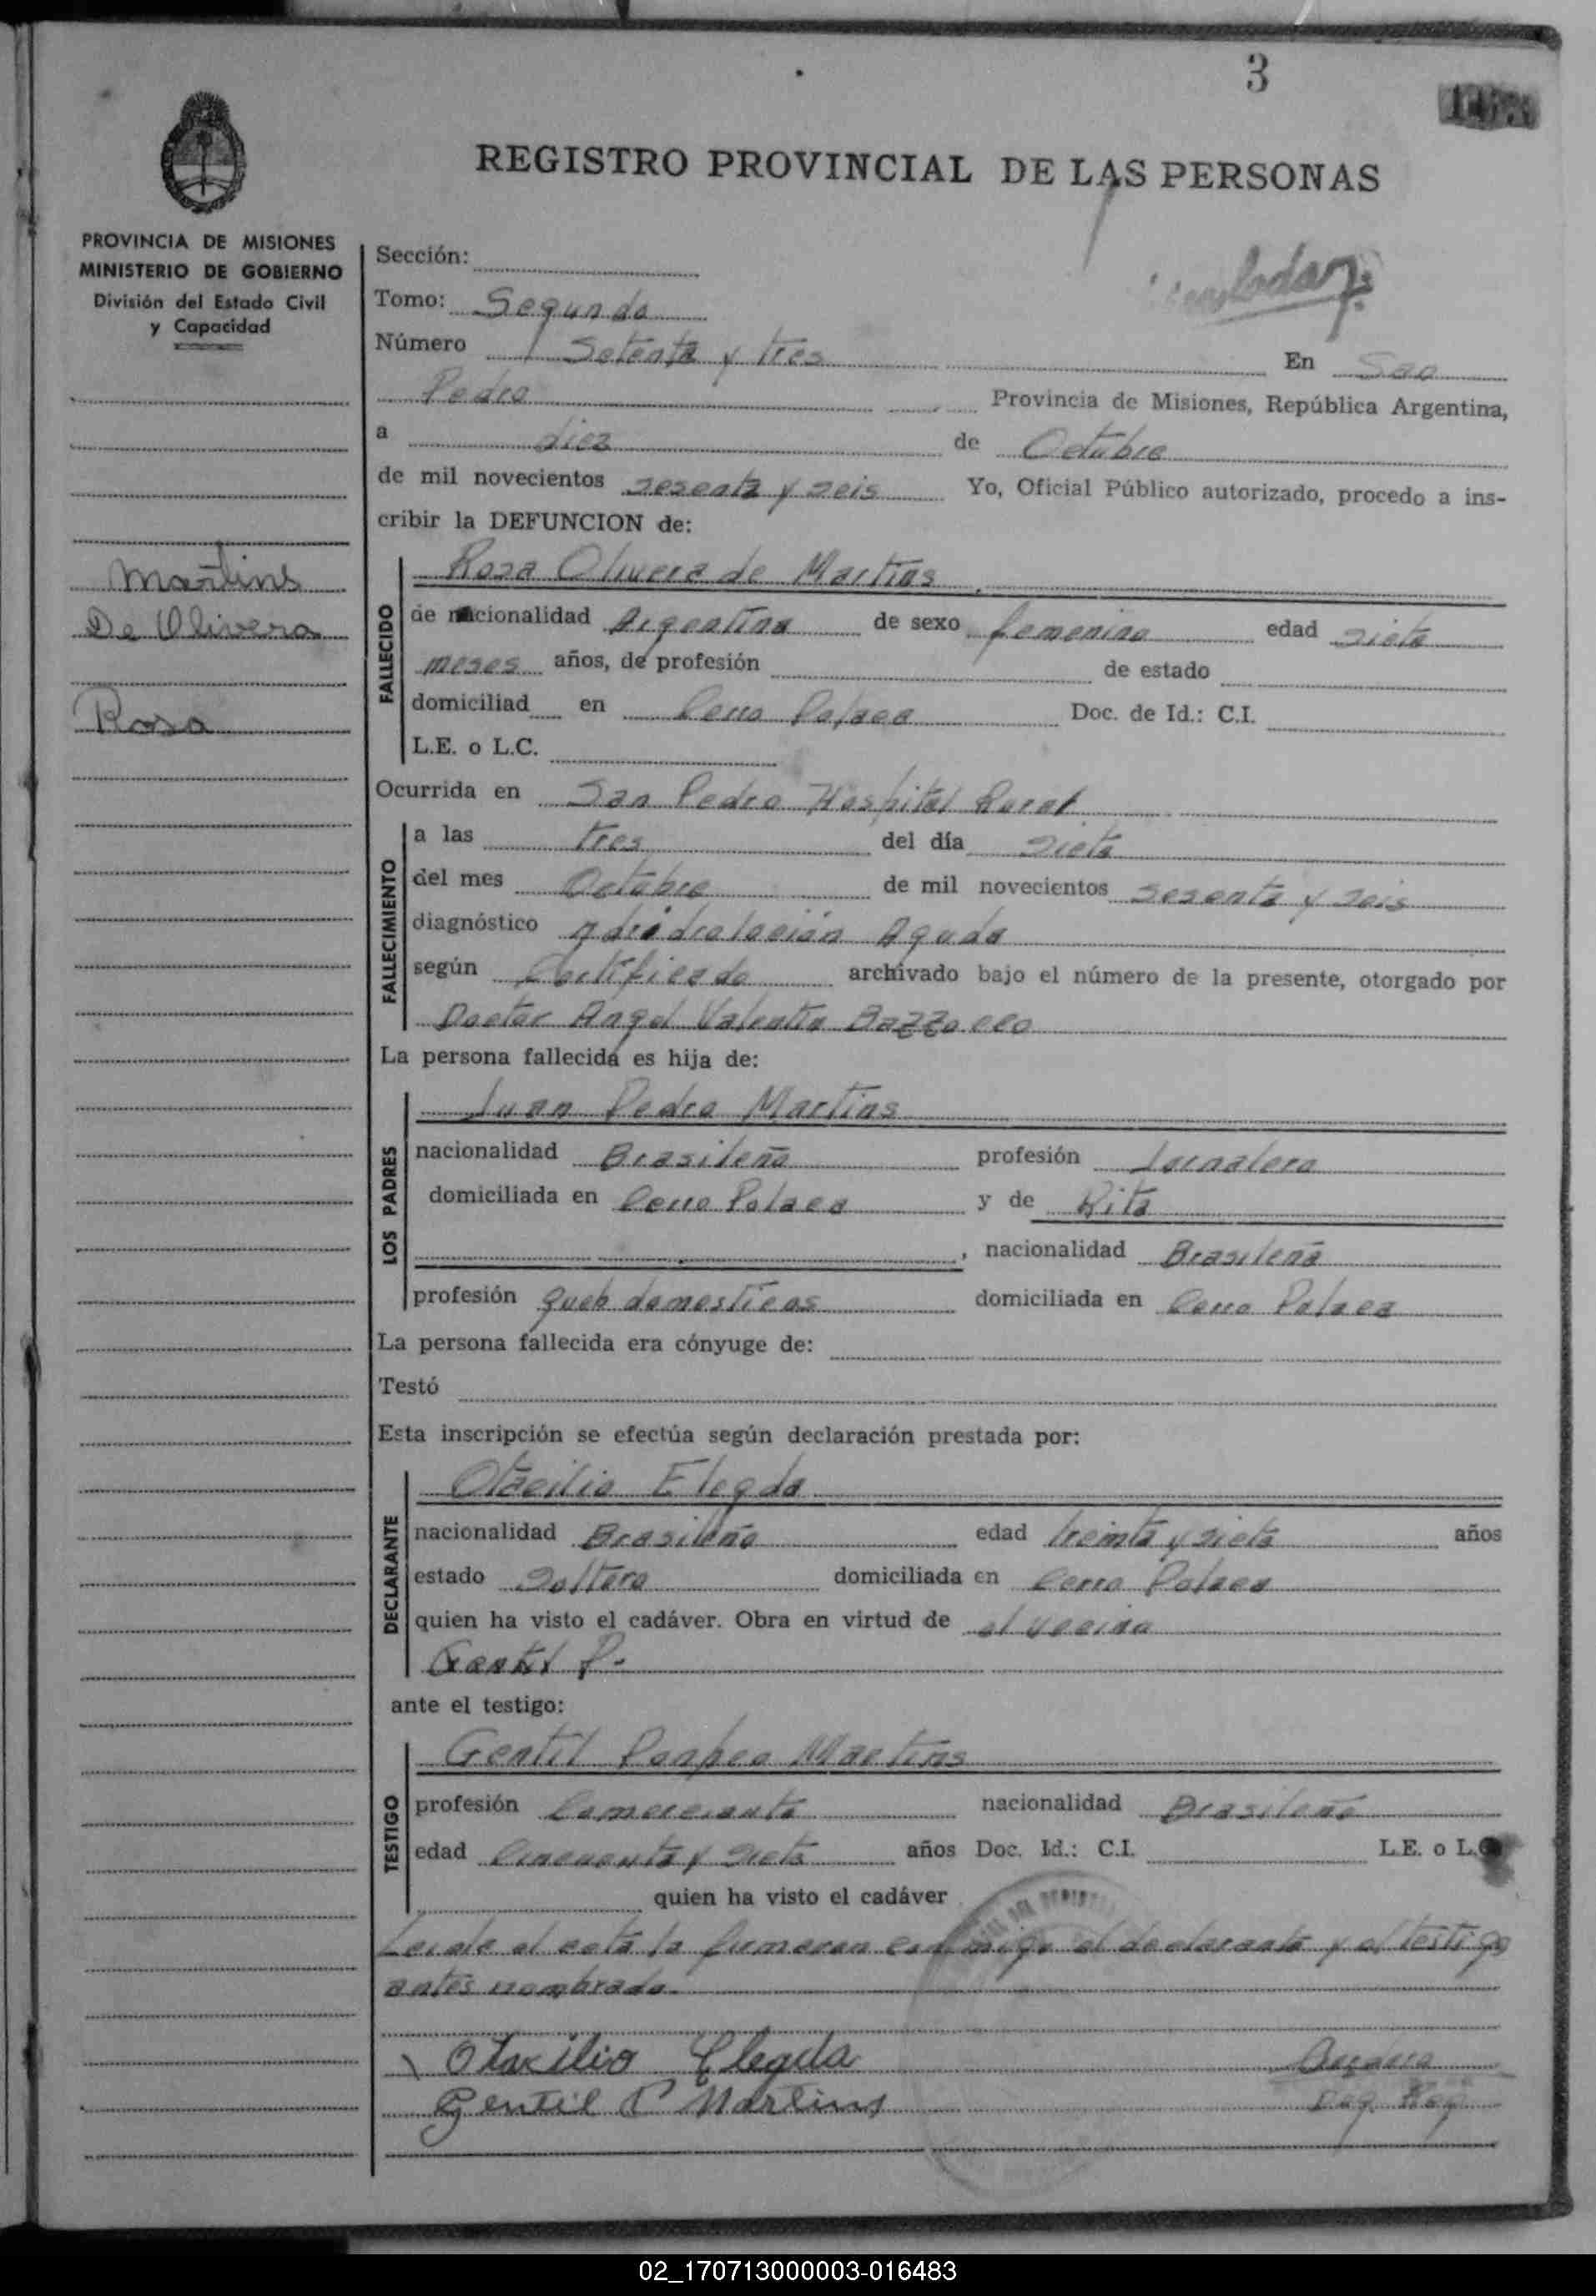 3
REGISTRO PROVINCIAL DE LAS PERSONAS
PROVINCIA DE MISIONES
MINISTERIO DE GOBIERNO
División del Estado Civil
y Capacidad
Martins
De Olivera
Rosa
Sección:
Tomo: Segundo
Número Setenta y tres En San
Pedro Provincia de Misiones, República Argentina,
a diez de Octubre
de mil novecientos sesenta y seis Yo, Oficial Público autorizado, procedo a ins-
cribir la DEFUNCION de:
Rosa Olivera de Martins
FALLECIDO
de nacionalidad Argentina de sexo femenino edad siete
meses años, de profesión de estado
domiciliad en Cerro Polaco Doc. de Id.: C.I.
L.E. o L.C.
Ocurrida en San Pedro Hospital Rural
FALLECIMIENTO
a las tres del día siete
del mes Octubre de mil novecientos sesenta y seis
diagnóstico Aguda
según Certificado archivado bajo el número de la presente, otorgado por
Doctor Angel Valentin
La persona fallecida es hija de:
LOS PADRES
Juan Pedro Martins
nacionalidad Brasileña profesión Jornalero
domiciliada en Cerro Polaco y de Rita
, nacionalidad Brasileña
profesión domesticos domiciliada en Cerro Polaco
La persona fallecida era cónyuge de:
Testó
Esta inscripción se efectúa según declaración prestada por:
DECLARANTE
Otacilio Elegda
nacionalidad Brasileño edad treinta y siete años
estado Soltero domiciliada en Cerro Polaco
quien ha visto el cadáver. Obra en virtud de el vecino
Gentil P.
ante el testigo:
TESTIGO
Gentil Martins
profesión Comerciante nacionalidad Brasileño
edad Cincuenta y siete años Doc. Id.: C.I. L.E. o L.C
quien ha visto el cadáver
Leida el acta la firmaran conmigo el declarante y el testigo
antes nombrado.
Otacilio Elegda
Gentil P Martins
02_170713000003-016483